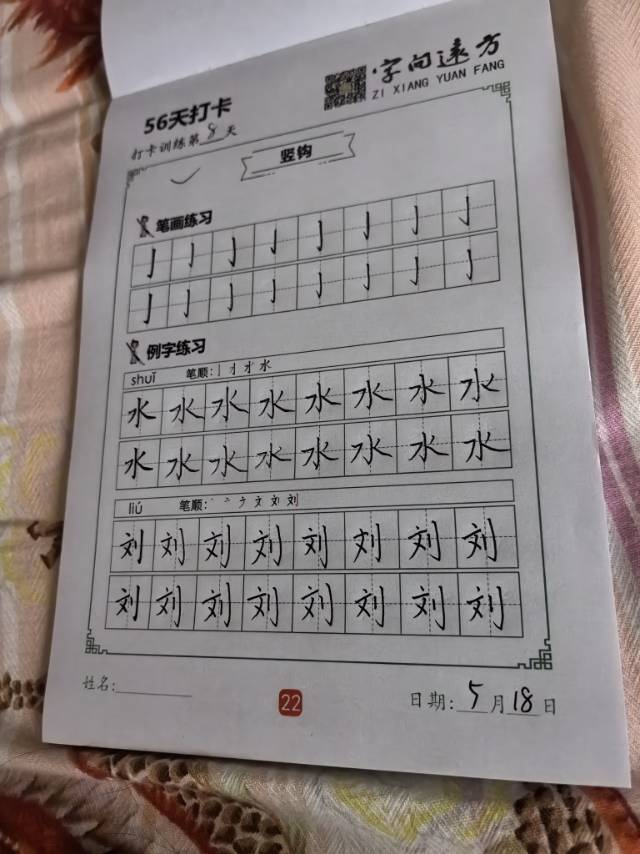 字向远方
ZI XIANG YUAN FANG
56天打卡
打卡训练第8天
竖钩
笔画练习
亅亅亅亅亅亅亅亅
亅亅亅亅亅亅亅亅
例字练习
shuǐ 笔顺:亅 水
水水水水水水水水
水水水水水水水水
liú 笔顺:丶 亠 ナ 文 刘 刘
刘刘刘刘刘刘刘刘
刘刘刘刘刘刘刘刘
姓名:
22
日期:5月18日